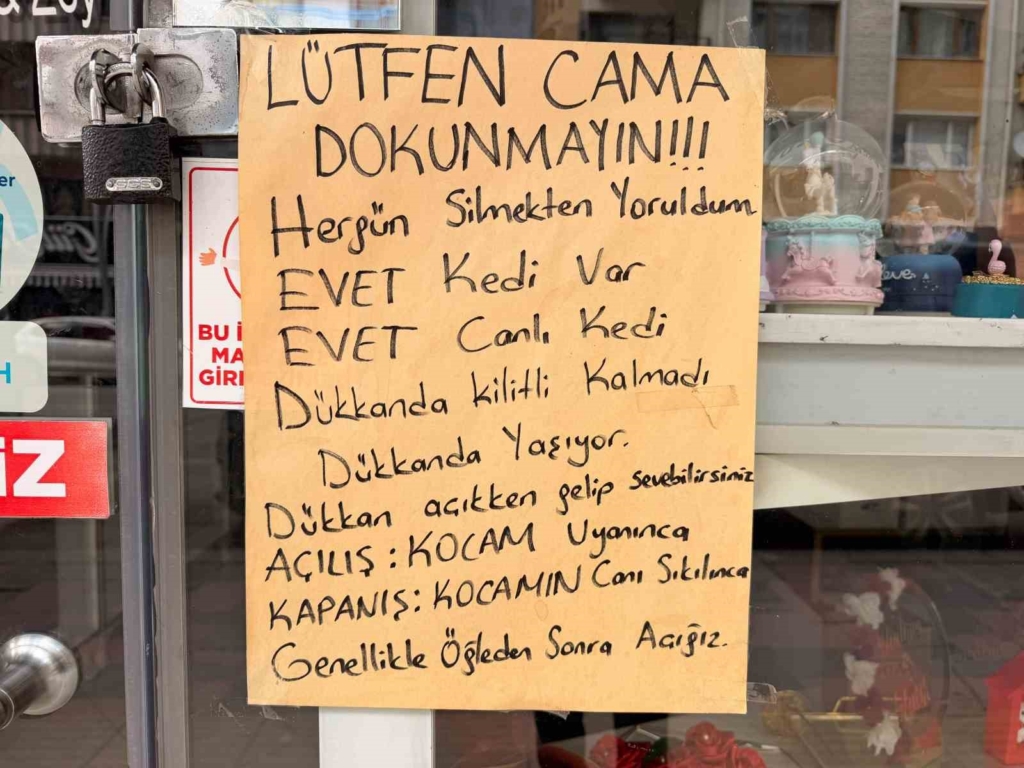 LÜTFEN CAMA
DOKUNMAYIN!!!
Hergün Silmekten Yoruldum
EVET Kedi Var
EVET Canlı Kedi
Dükkanda kilitli Kalmadı
Dükkanda Yaşıyor.
Dükkan açıkken gelip sevebilirsiniz
AÇILIŞ : KOCAM Uyanınca
KAPANIŞ : KOCAMIN Canı Sıkılınca
Genellikle Öğleden Sonra Açığız.
BU
MA
GİR
İZ